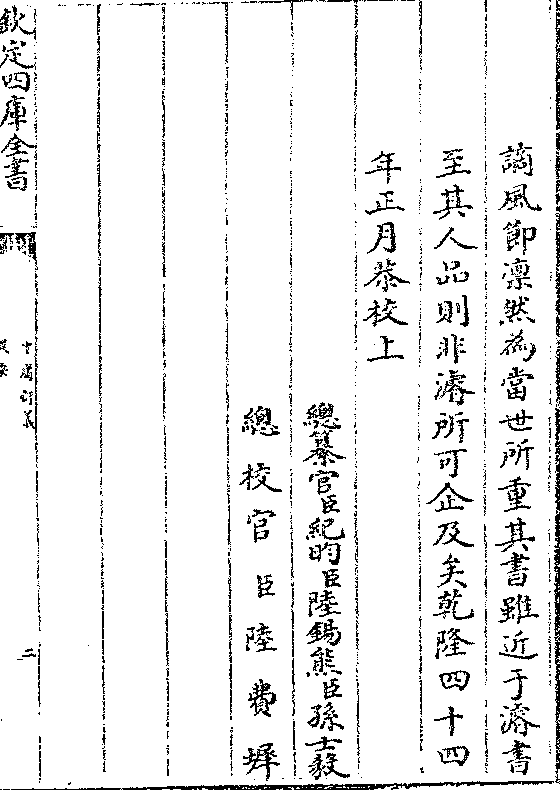 謫風節凛然為當世所重其書雖近于濬書
至其人品則非濬所可企及矣乾隆四十四
年正月恭校上
總纂官臣紀昀臣陸錫熊臣孫士毅
總校官臣陸費墀
欽定四庫全書
提要
二